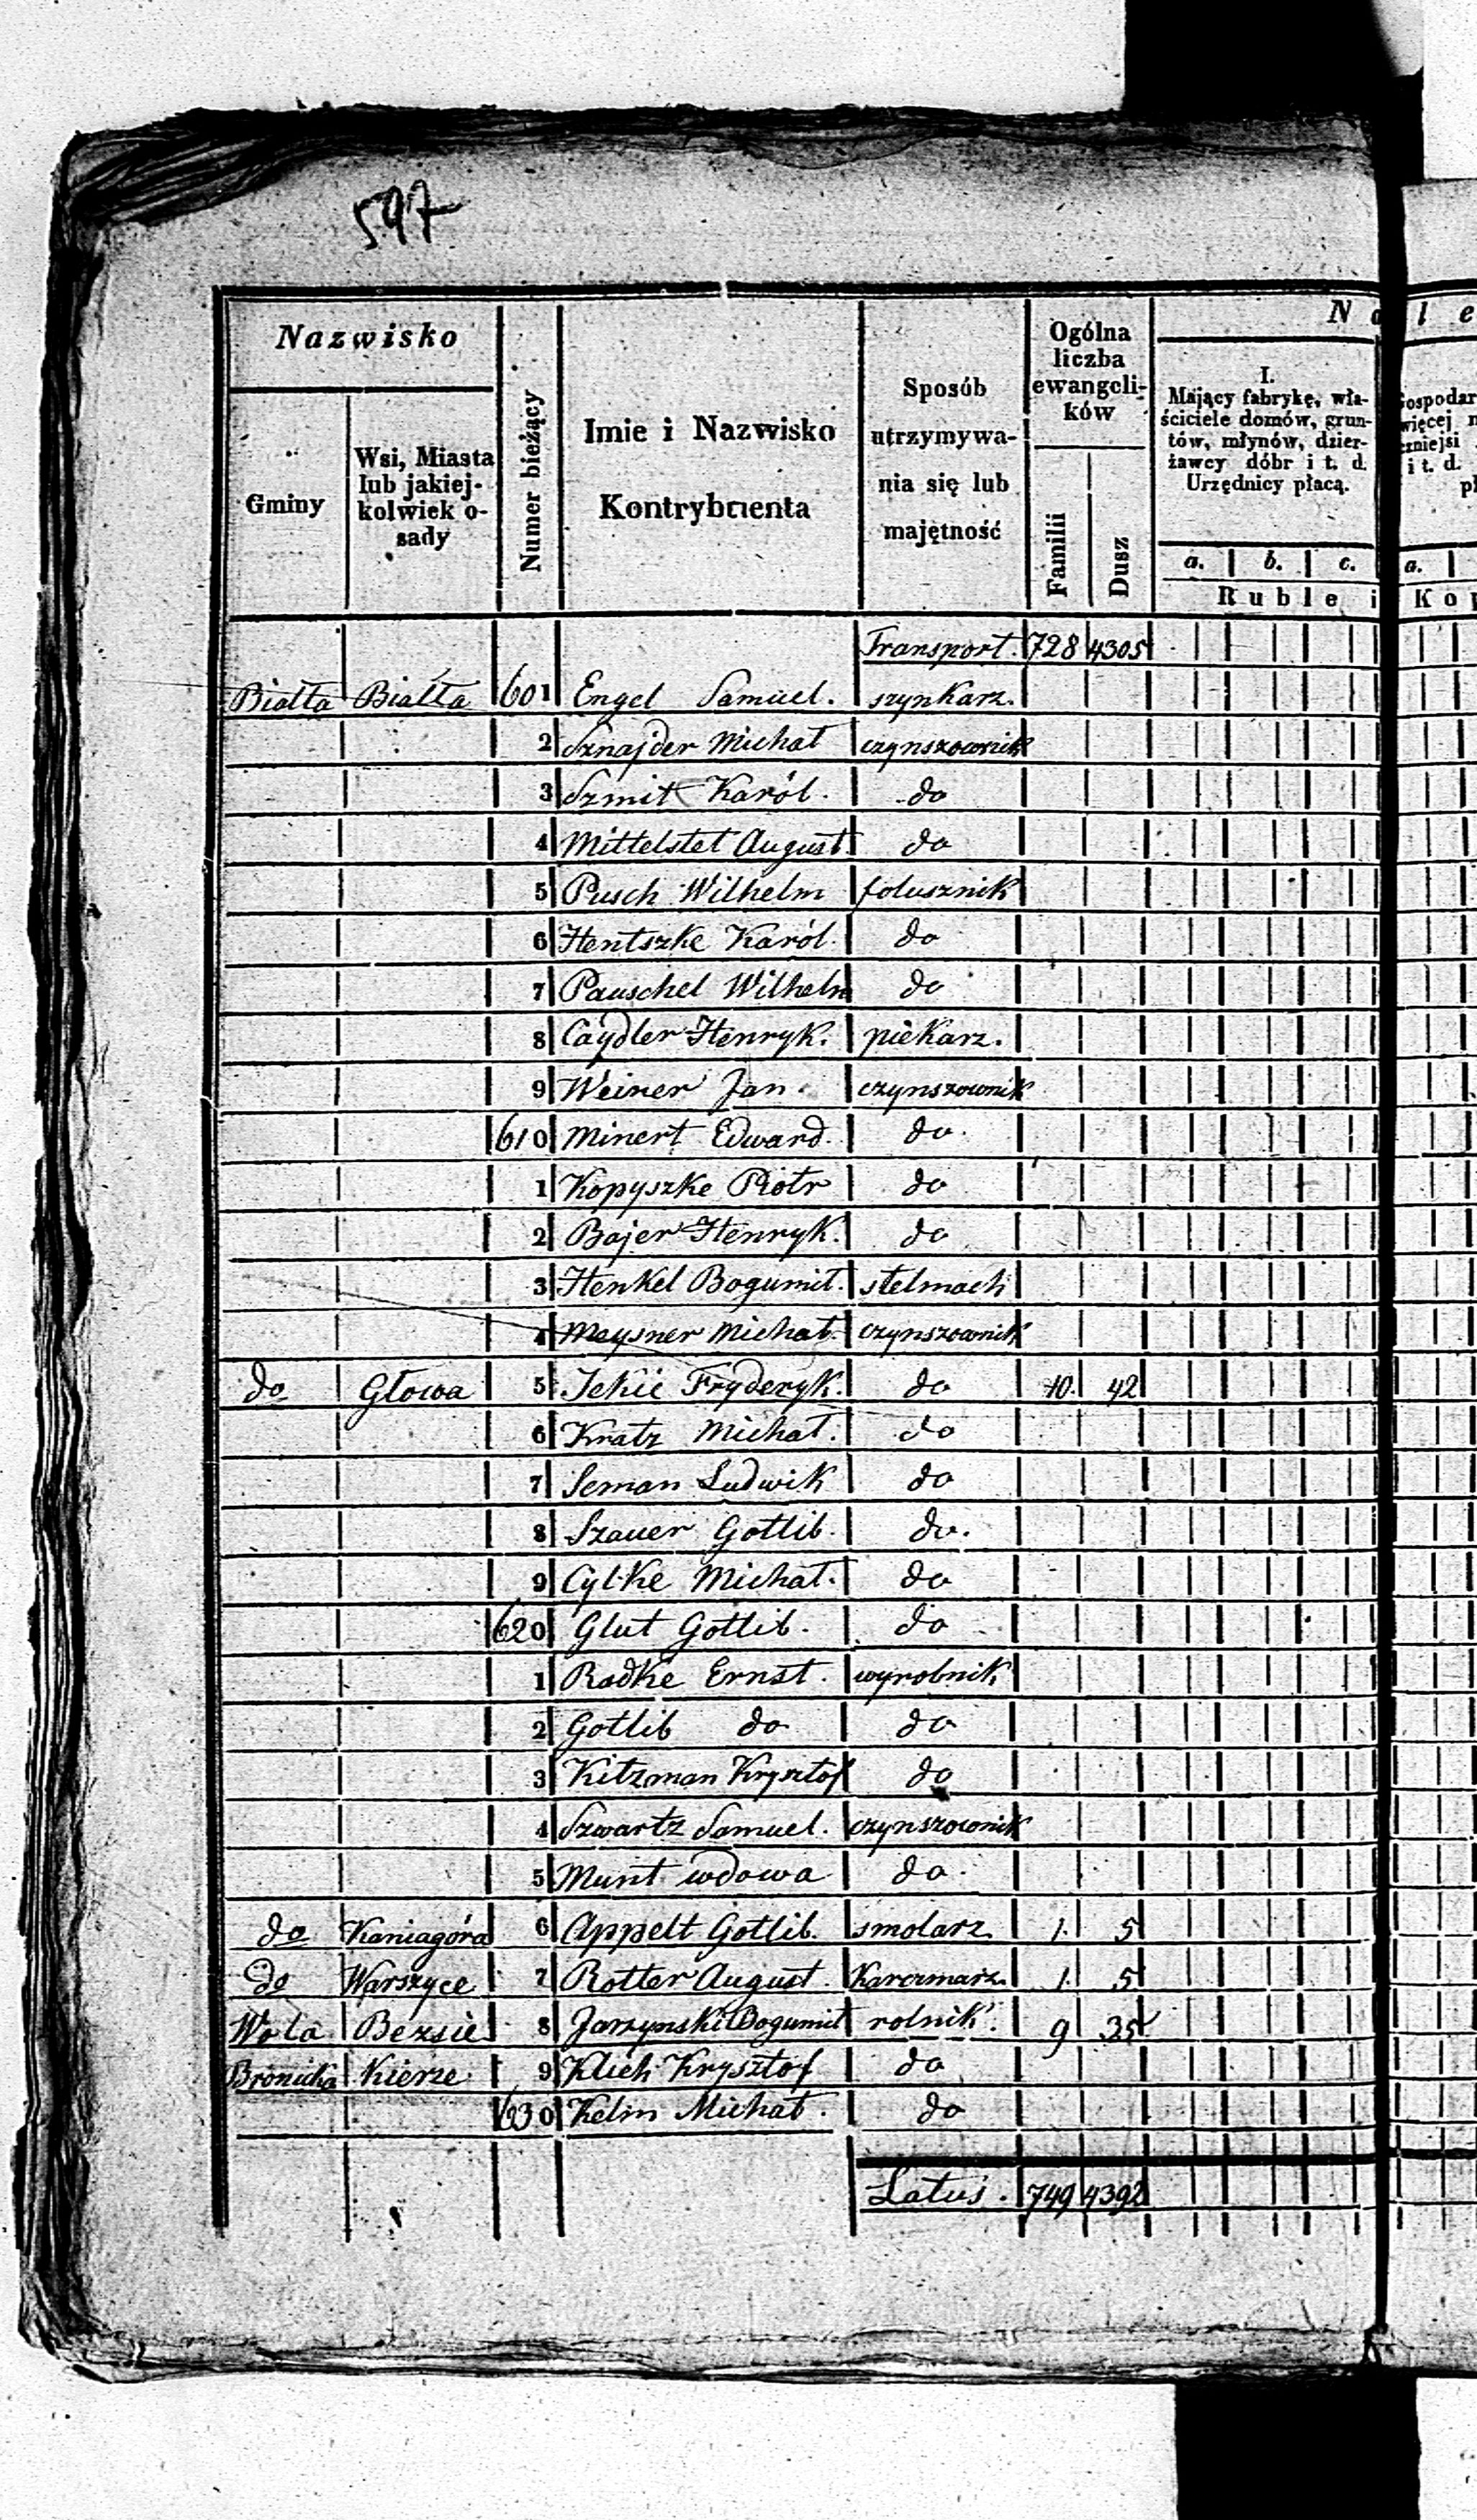 597
Nazwisko
Gminy
Wsi, Miasta
lub jakiej-
kolwiek o-
sady
Numer bieżący
Imie i Nazwisko
Kontrybuenta
Sposób
utrzymywa-
nia się lub
majętność
Ogólna
liczba
ewangeli-
ków
Familii
Dusz
N a l e
I.
Mający fabrykę, wła-
ściciele domów, grun-
tów, młynów, dzier-
żawcy dóbr i t. d.
Urzędnicy płacą.
a. b. c.
a.
Ruble i Kop
Gospodar
więcej
i t. d.
Transport. 728 4305
Białła Białła 601 Engel Samuel. szynkarz.
2 Sznajder Michał czynszownik
3 Szmit Karól. do
4 Mittelstet August. do
5 Pusch Wilhelm folusznik
6 Hentszke Karól. do
7 Pauschel Wilhelm do
8 Caydler Henryk. piekarz.
9 Weiner Jan. czynszownik
610 Minert Edward. do.
1 Kopyszke Piotr do
2 Bajer Henryk. do
3 Henkel Bogumił. stelmach
4 Meysner Michał. czynszownik
do Głowa 5 Jekie Fryderyk. do 10. 42
6 Kratz Michał. do
7 Seman Ludwik do
8 Szauer Gotlib. do.
9 Cylke Michał. do
620 Glut Gotlib. do
1 Radke Ernst. wyrobnik
2 Gotlib do do
3 Kitzman Krysztof do
4 Szwartz Samuel. czynszownik
5 Munt wdowa do.
do Kaniagóra 6 Appelt Gotlib. smolarz 1. 5
do Warszyce 7 Rotter August. Karczmarz. 1. 5
Wola Bezsie 8 Jarzynski Bogumił rolnik. 9 35
Bronicka Kierze 9 Klich Krysztof do
630 Kelm Michał. do
Latus. 749 4392